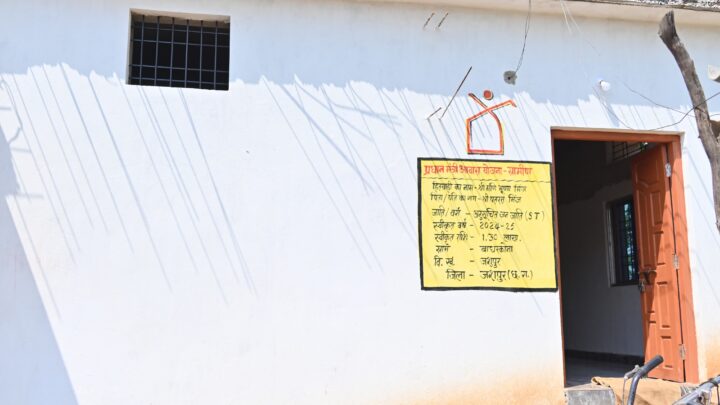 प्रधान मंत्री आवास योजना - ग्रामीण
हितग्राही का नाम - श्री शशि भूषण मिंज
पिता/पति का नाम - श्री मिंज
जाति/वर्ग - अनुसूचित जन जाति (ST)
स्वीकृत वर्ष - 2024-25
स्वीकृत राशि - 1.30 लाख.
ग्राम - बाघरकोना
वि. खं. - जशपुर
जिला - जशपुर (छ.ग.)